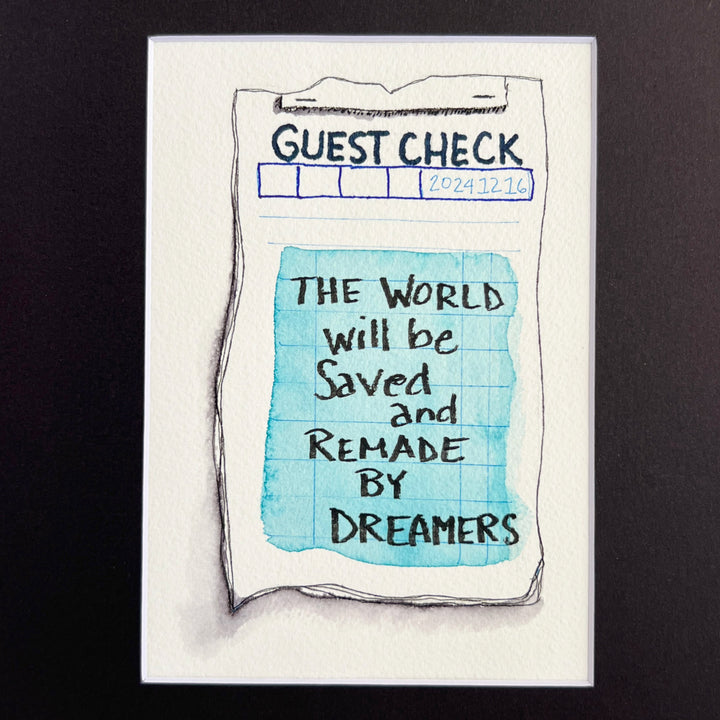 GUEST CHECK
20241216
THE WORLD
will be
Saved
and
REMADE
BY
DREAMERS